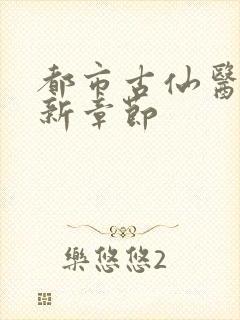 都市古仙醫
新章節
樂悠悠2